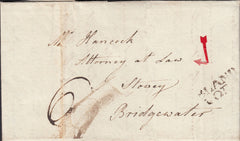 Mr Hancock
Attorney at Law
Stowey
Bridgewater
6